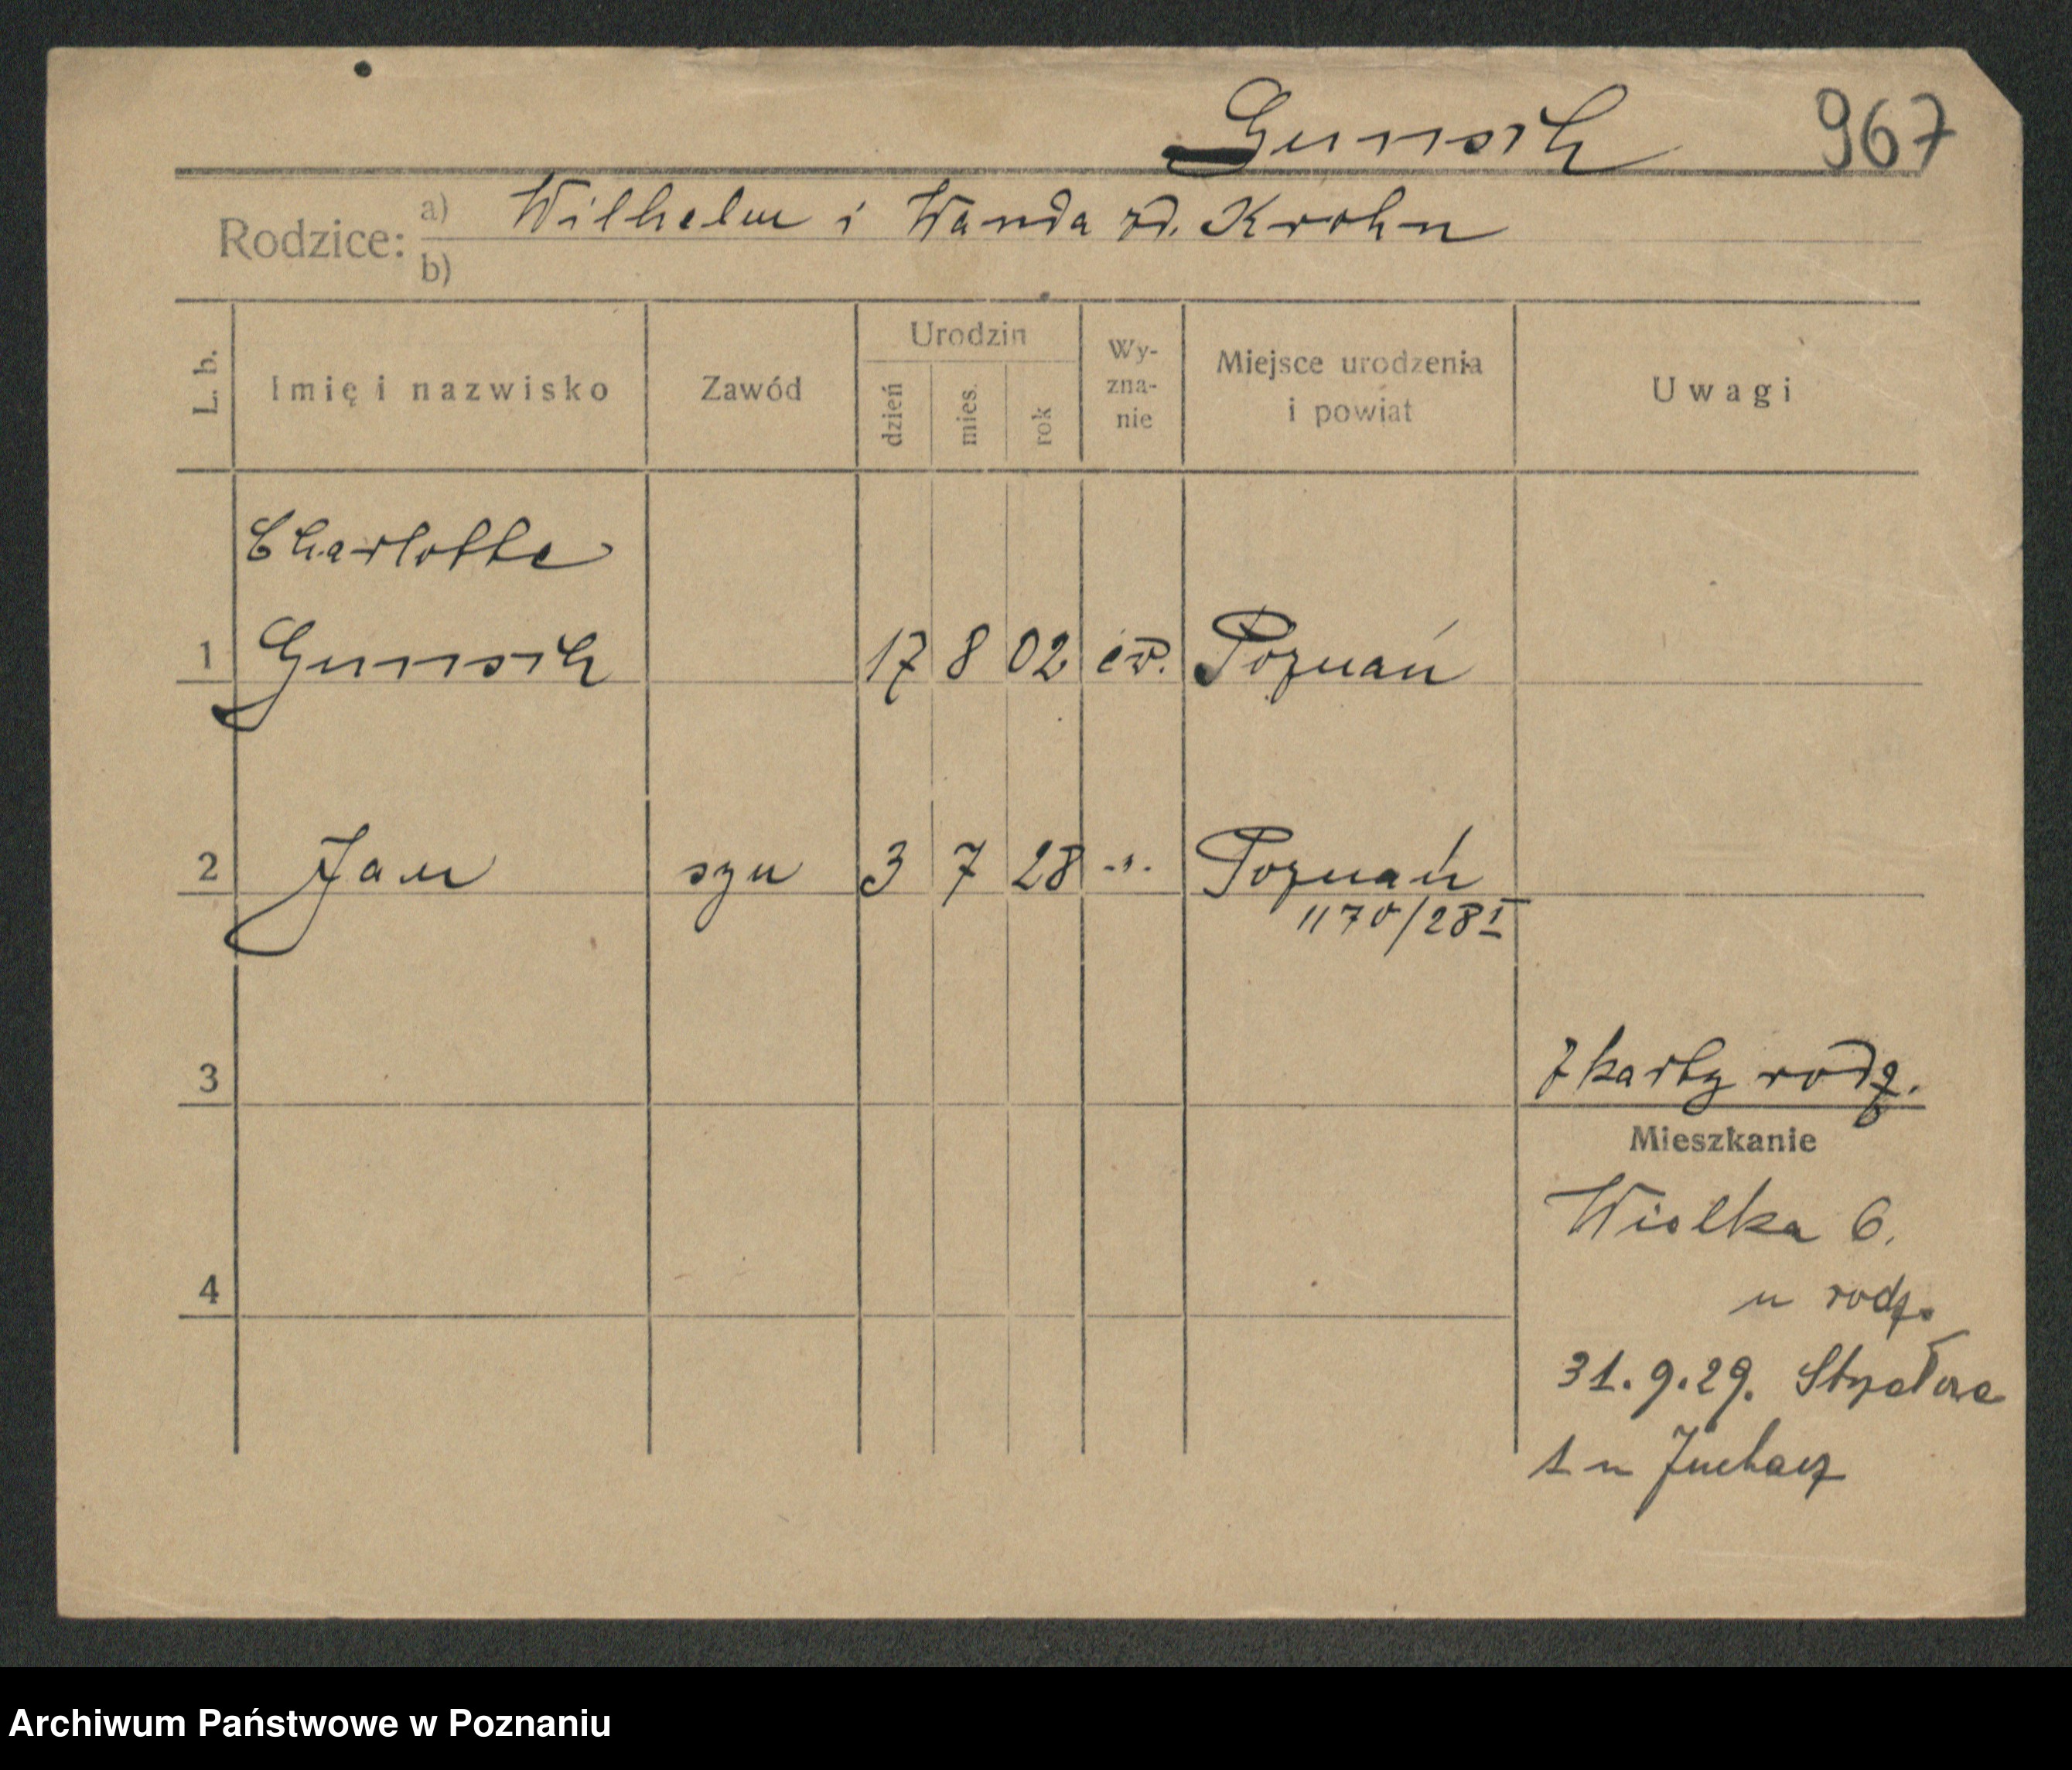 Gunsch 967
Rodzice: a) Wilhelm i Wanda zd. Krohn
b)
L. b. Imię i nazwisko Zawód Urodzin dzień mies. rok Wy-zna-nie Miejsce urodzenia i powiat Uwagi
Charlotte
1 Gunsch 17 8 02 ew. Poznań
2 Jan syn 3 7 28 -"- Poznań
1170/28 I
3 Z karty rodz.
Mieszkanie
Wielka 6.
4 u rodz.
31.9.29.
1 u Juchacz
Archiwum Państwowe w Poznaniu